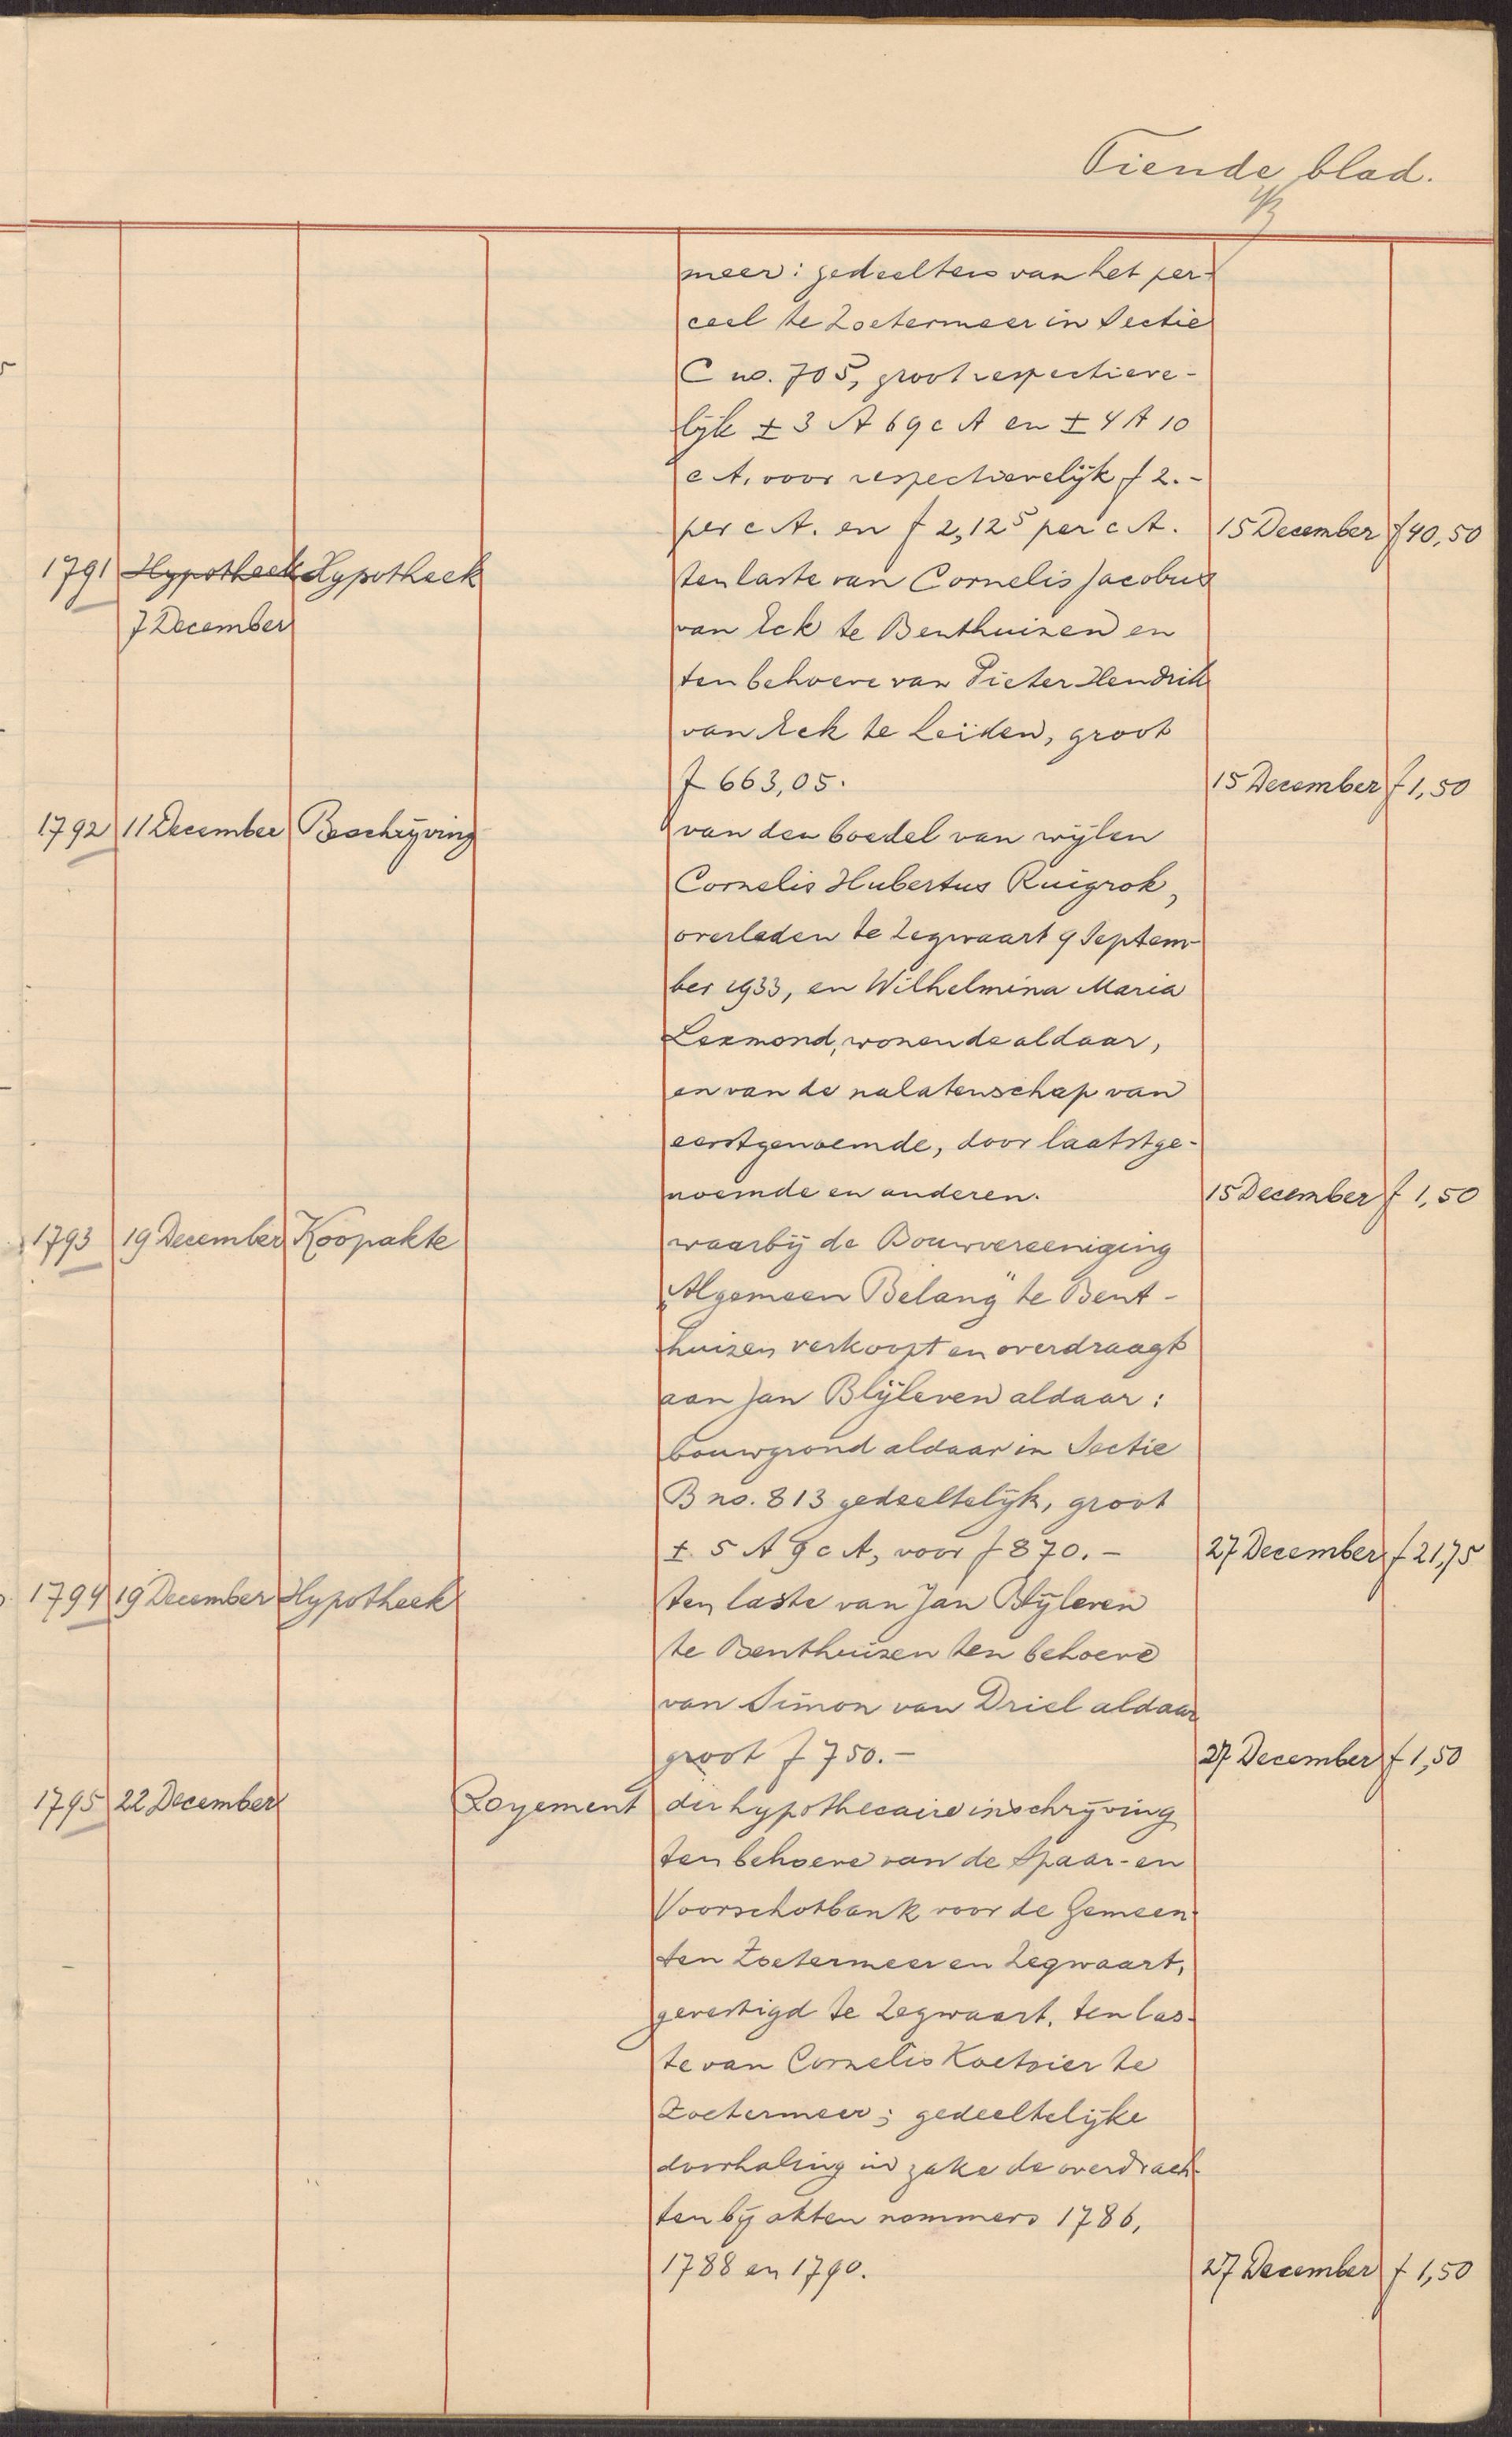 Tiende blad.
meer: gedeelten van het per-
ceel te Zoetermeer in Sectie
C no. 705, groot respectieve-
lijk ± 3 A 69 c A en ± 4 A 10
c A, voor respectievelijk f 2.-
per c A. en f 2,12⁵ per c A. 15 December f 40,50
1791 Hypotheek Hypotheek ten laste van Cornelis Jacobus
7 December van Eck te Benthuizen en
ten behoeve van Pieter Hendrik
van Eck te Leiden, groot
f 663,05. 15 December f 1,50
1792 11 December Beschrijving van den boedel van wijlen
Cornelis Hubertus Ruigrok,
overleden te Zegwaart 9 Septem-
ber 1933, en Wilhelmina Maria
Lexmond, wonende aldaar,
en van de nalatenschap van
eerstgenoemde, door laatstge-
noemde en anderen. 15 December f 1,50
1793 19 December Koopakte waarbij de Bouwvereeniging
„Algemeen Belang" te Bent-
huizen verkoopt en overdraagt
aan Jan Blijleven aldaar:
bouwgrond aldaar in Sectie
B no. 813 gedeeltelijk, groot
±. 5 A 9 c A, voor f 870.- 27 December f 21,75
1794 19 December Hypotheek ten laste van Jan Blijleven
te Benthuizen ten behoeve
van Simon van Driel aldaar
groot f 750.- 27 December f 1,50
1795 22 December Royement der hypothecaire inschrijving
ten behoeve van de Spaar- en
Voorschotbank voor de Gemeen-
ten Zoetermeer en Zegwaart,
gevestigd te Zegwaart, ten las-
te van Cornelis Koetsier te
Zoetermeer; gedeeltelijke
doorhaling in zake de overdrach-
ten bij akten nommers 1786,
1788 en 1790. 27 December f 1,50